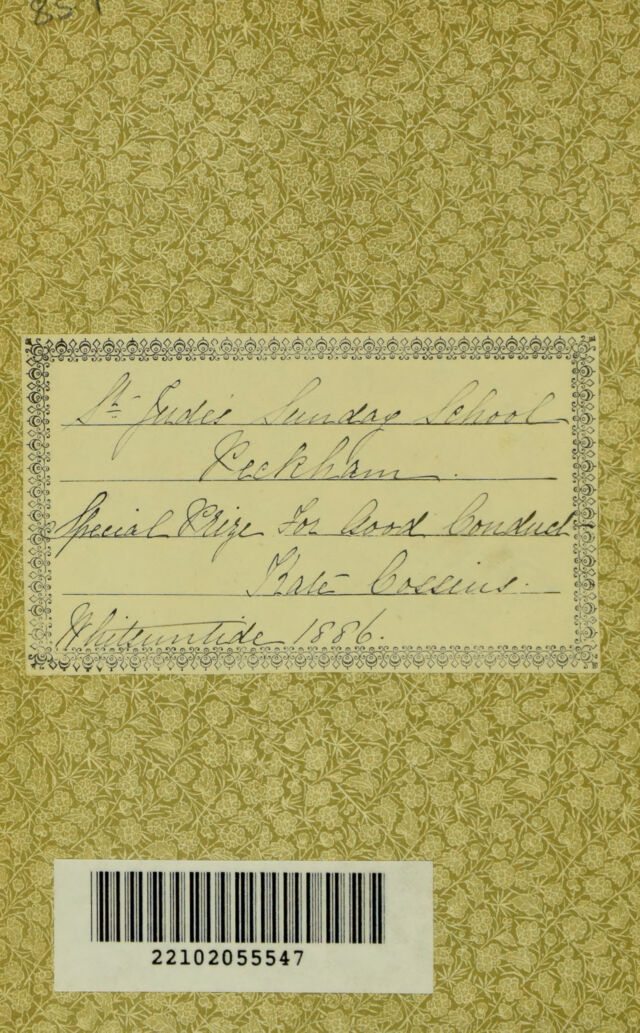 St. Jude's Sunday School
Peckham.
Special Prize For Good Conduct
Kate Cossins.
Whitsuntide 1886.
22102055547